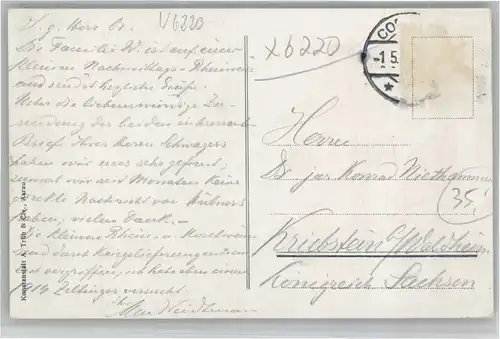 V6220
x6220
S. g. Herr Dr.
Die Familie W. ist auf einer
kleinen Nachmittags-Rheinreise
und sendet herzliche Grüße.
Ueber die liebenswürdige Zu-
sendung der beiden interessant.
Brief Ihres Herrn Schwagers
haben wir uns sehr gefreut,
zumal wir seit Monaten keine
direkte Nachricht von Hübners
haben; vielen Dank. -
Die kleineren Rhein- u. Moselweine
sind durch Kriegslieferungen
vergriffen, ich habe aber einen
1914 Zeltinger versucht.
Ihr
CO
-1.5.
Herrn
Dr. jur. Konrad Niethammer
35,
Kriebstein b/Waldheim
Königreich Sachsen
Kunstanstalt A. Trüb & Cie., Aarau